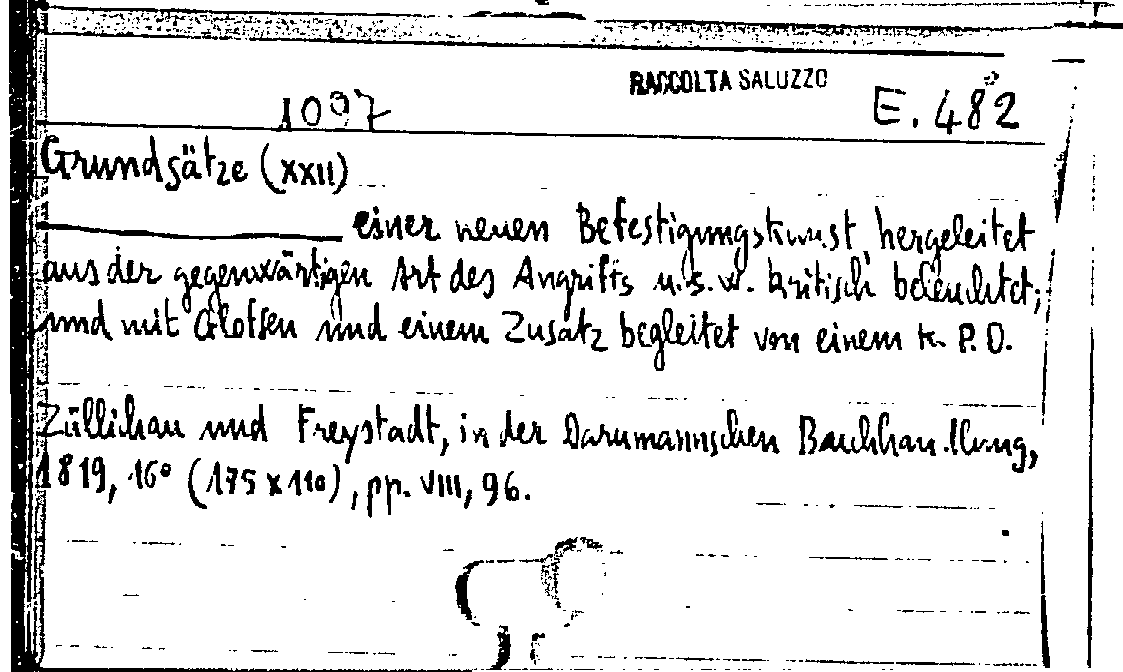 RACCOLTA SALUZZO
1097 E. 482
Grundsätze (XXII)
einer neuen Befestigungskunst, hergeleitet
aus der gegenwärtigen Art des Angriffs u.s.w. kritisch beleuchtet;
und mit Glofsen und einem Zusatz begleitet von einem K. P. O.
Züllichau und Freystadt, in der Darnmannschen Buchhandlung,
1819, 16° (175 x 110), pp. VIII, 96.